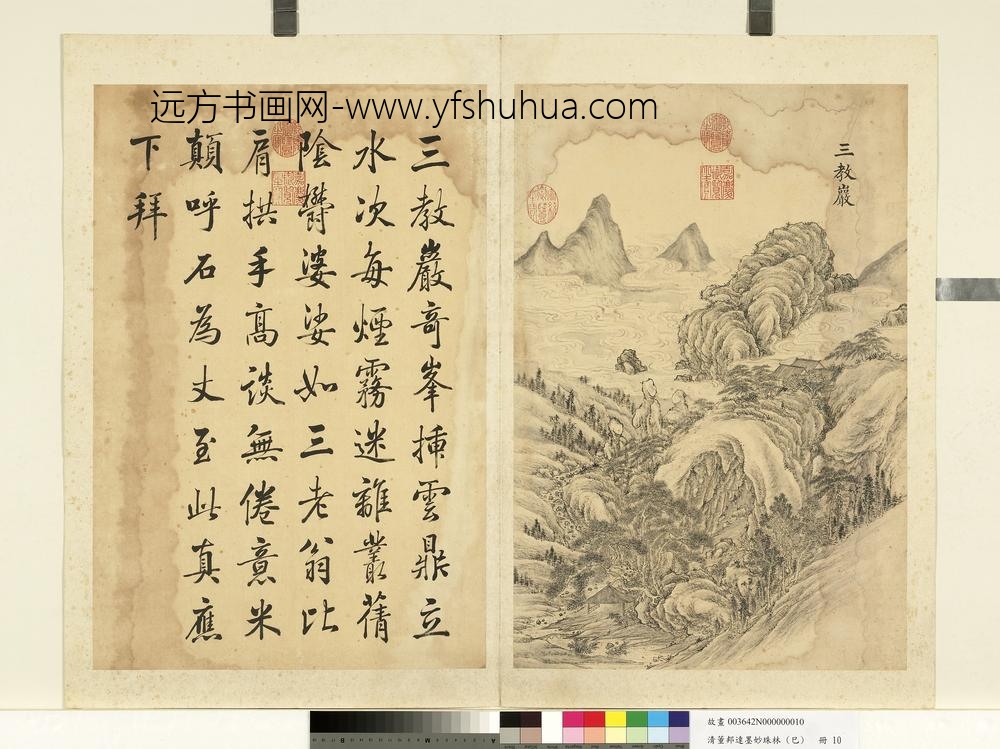 远方书画网-www.yfshuhua.com
三教巖
三教巖奇峯揷雲鼎立
水次每煙霧迷離叢蒨
陰欝婆娑如三老翁比
肩拱手高談無倦意米
顛呼石為丈至此真應
下拜
故畫 003642N000000010
清董邦達墨妙珠林（巳） 冊 10